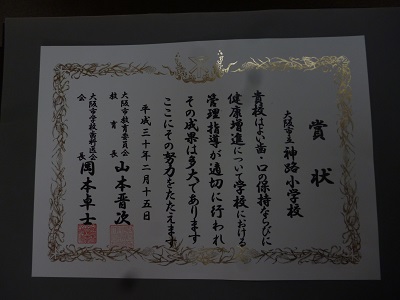 賞状
大阪市立 神路小学校
貴校はよい歯・口の保持ならびに
健康増進について学校における
管理指導が適切に行われ
その成果は多大であります
ここにその努力をたたえます
平成三十年二月十五日
大阪市教育委員会
教育長 山本晋次
大阪市学校歯科医会
会長 岡本卓士